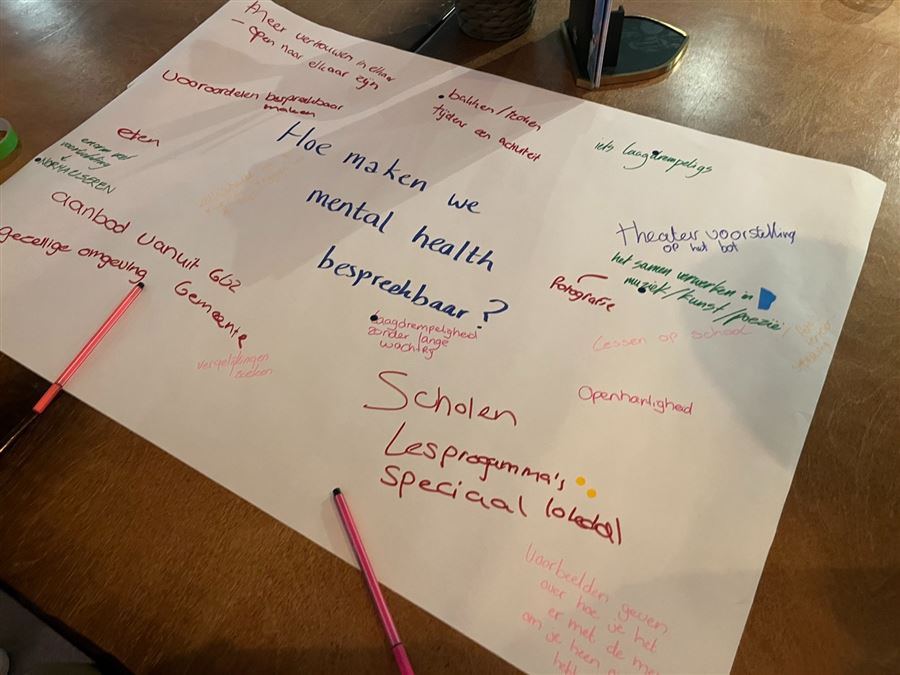 Meer vertrouwen in elkaar
– open naar elkaar zijn
vooroordelen bespreekbaar
maken
• bakken / koken
tijdens een activiteit
iets laagdrempeligs
eten
• NORMALISEREN
Hoe maken we
mental health
bespreekbaar?
aanbod vanuit GGZ
Gemeente
gezellige omgeving
vergelijkingen
zoeken
laagdrempeligheid
zonder lange
theater voorstelling
op het bot
het samen verwerken in
muziek / kunst / poëzie
fotografie
Lessen op school
Openhartigheid
Scholen
Lesprogamma's
Speciaal lokaal
Voorbeelden geven
over hoe je het
er met de me
om je heen
hebt